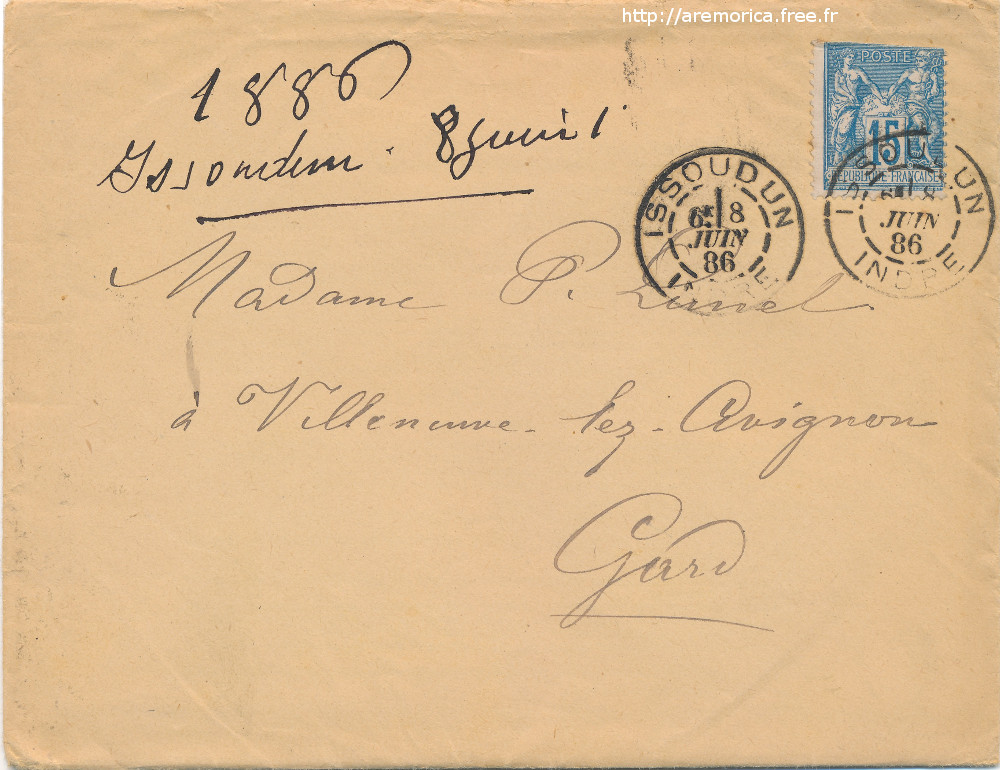 http://aremorica.free.fr
1886
Issoudun. 8 juin
POSTE
15
REPUBLIQUE FRANÇAISE
ISSOUDUN
6E 8
JUIN
86
INDRE
ISSOUDUN
6E 8
JUIN
86
INDRE
Madame P. Lunel
à Villeneuve-lez-Avignon
Gard